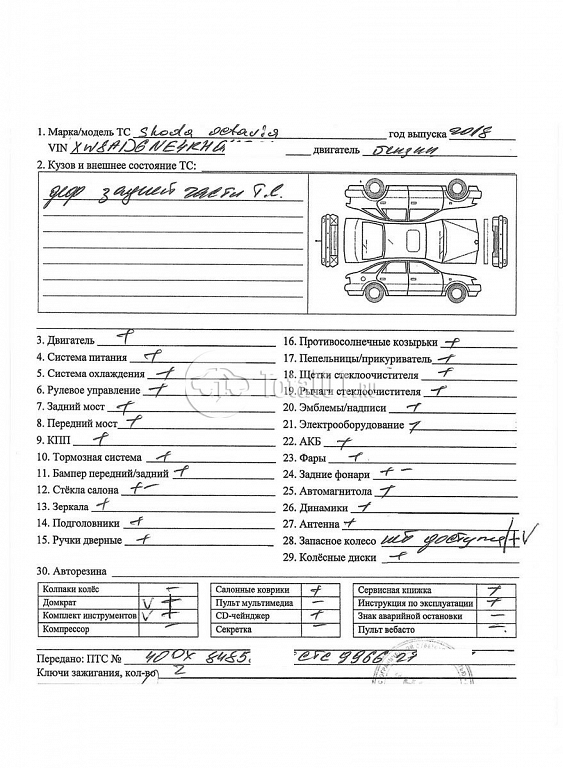 1. Марка/модель ТС Skoda octavia год выпуска 2018
VIN двигатель бензин
2. Кузов и внешнее состояние ТС:
деф задней части Т.С.
3. Двигатель +
4. Система питания +
5. Система охлаждения +
6. Рулевое управление +
7. Задний мост +
8. Передний мост +
9. КПП +
10. Тормозная система +
11. Бампер передний/задний +
12. Стёкла салона + -
13. Зеркала +
14. Подголовники +
15. Ручки дверные +
16. Противосолнечные козырьки +
17. Пепельницы/прикуриватель +
18. Щётки стеклоочистителя +
19. Рычаги стеклоочистителя +
20. Эмблемы/надписи +
21. Электрооборудование +
22. АКБ +
23. Фары +
24. Задние фонари + -
25. Автомагнитола +
26. Динамики +
27. Антенна +
28. Запасное колесо
29. Колёсные диски +
30. Авторезина
Колпаки колёс -
Домкрат V +
Комплект инструментов V +
Компрессор -
Салонные коврики +
Пульт мультимедиа -
CD-чейнджер +
Секретка -
Сервисная книжка +
Инструкция по эксплуатации +
Знак аварийной остановки -
Пульт вебасто -
Передано: ПТС № 40 ОХ 8485. СТС 9966 27
Ключи зажигания, кол-во 2